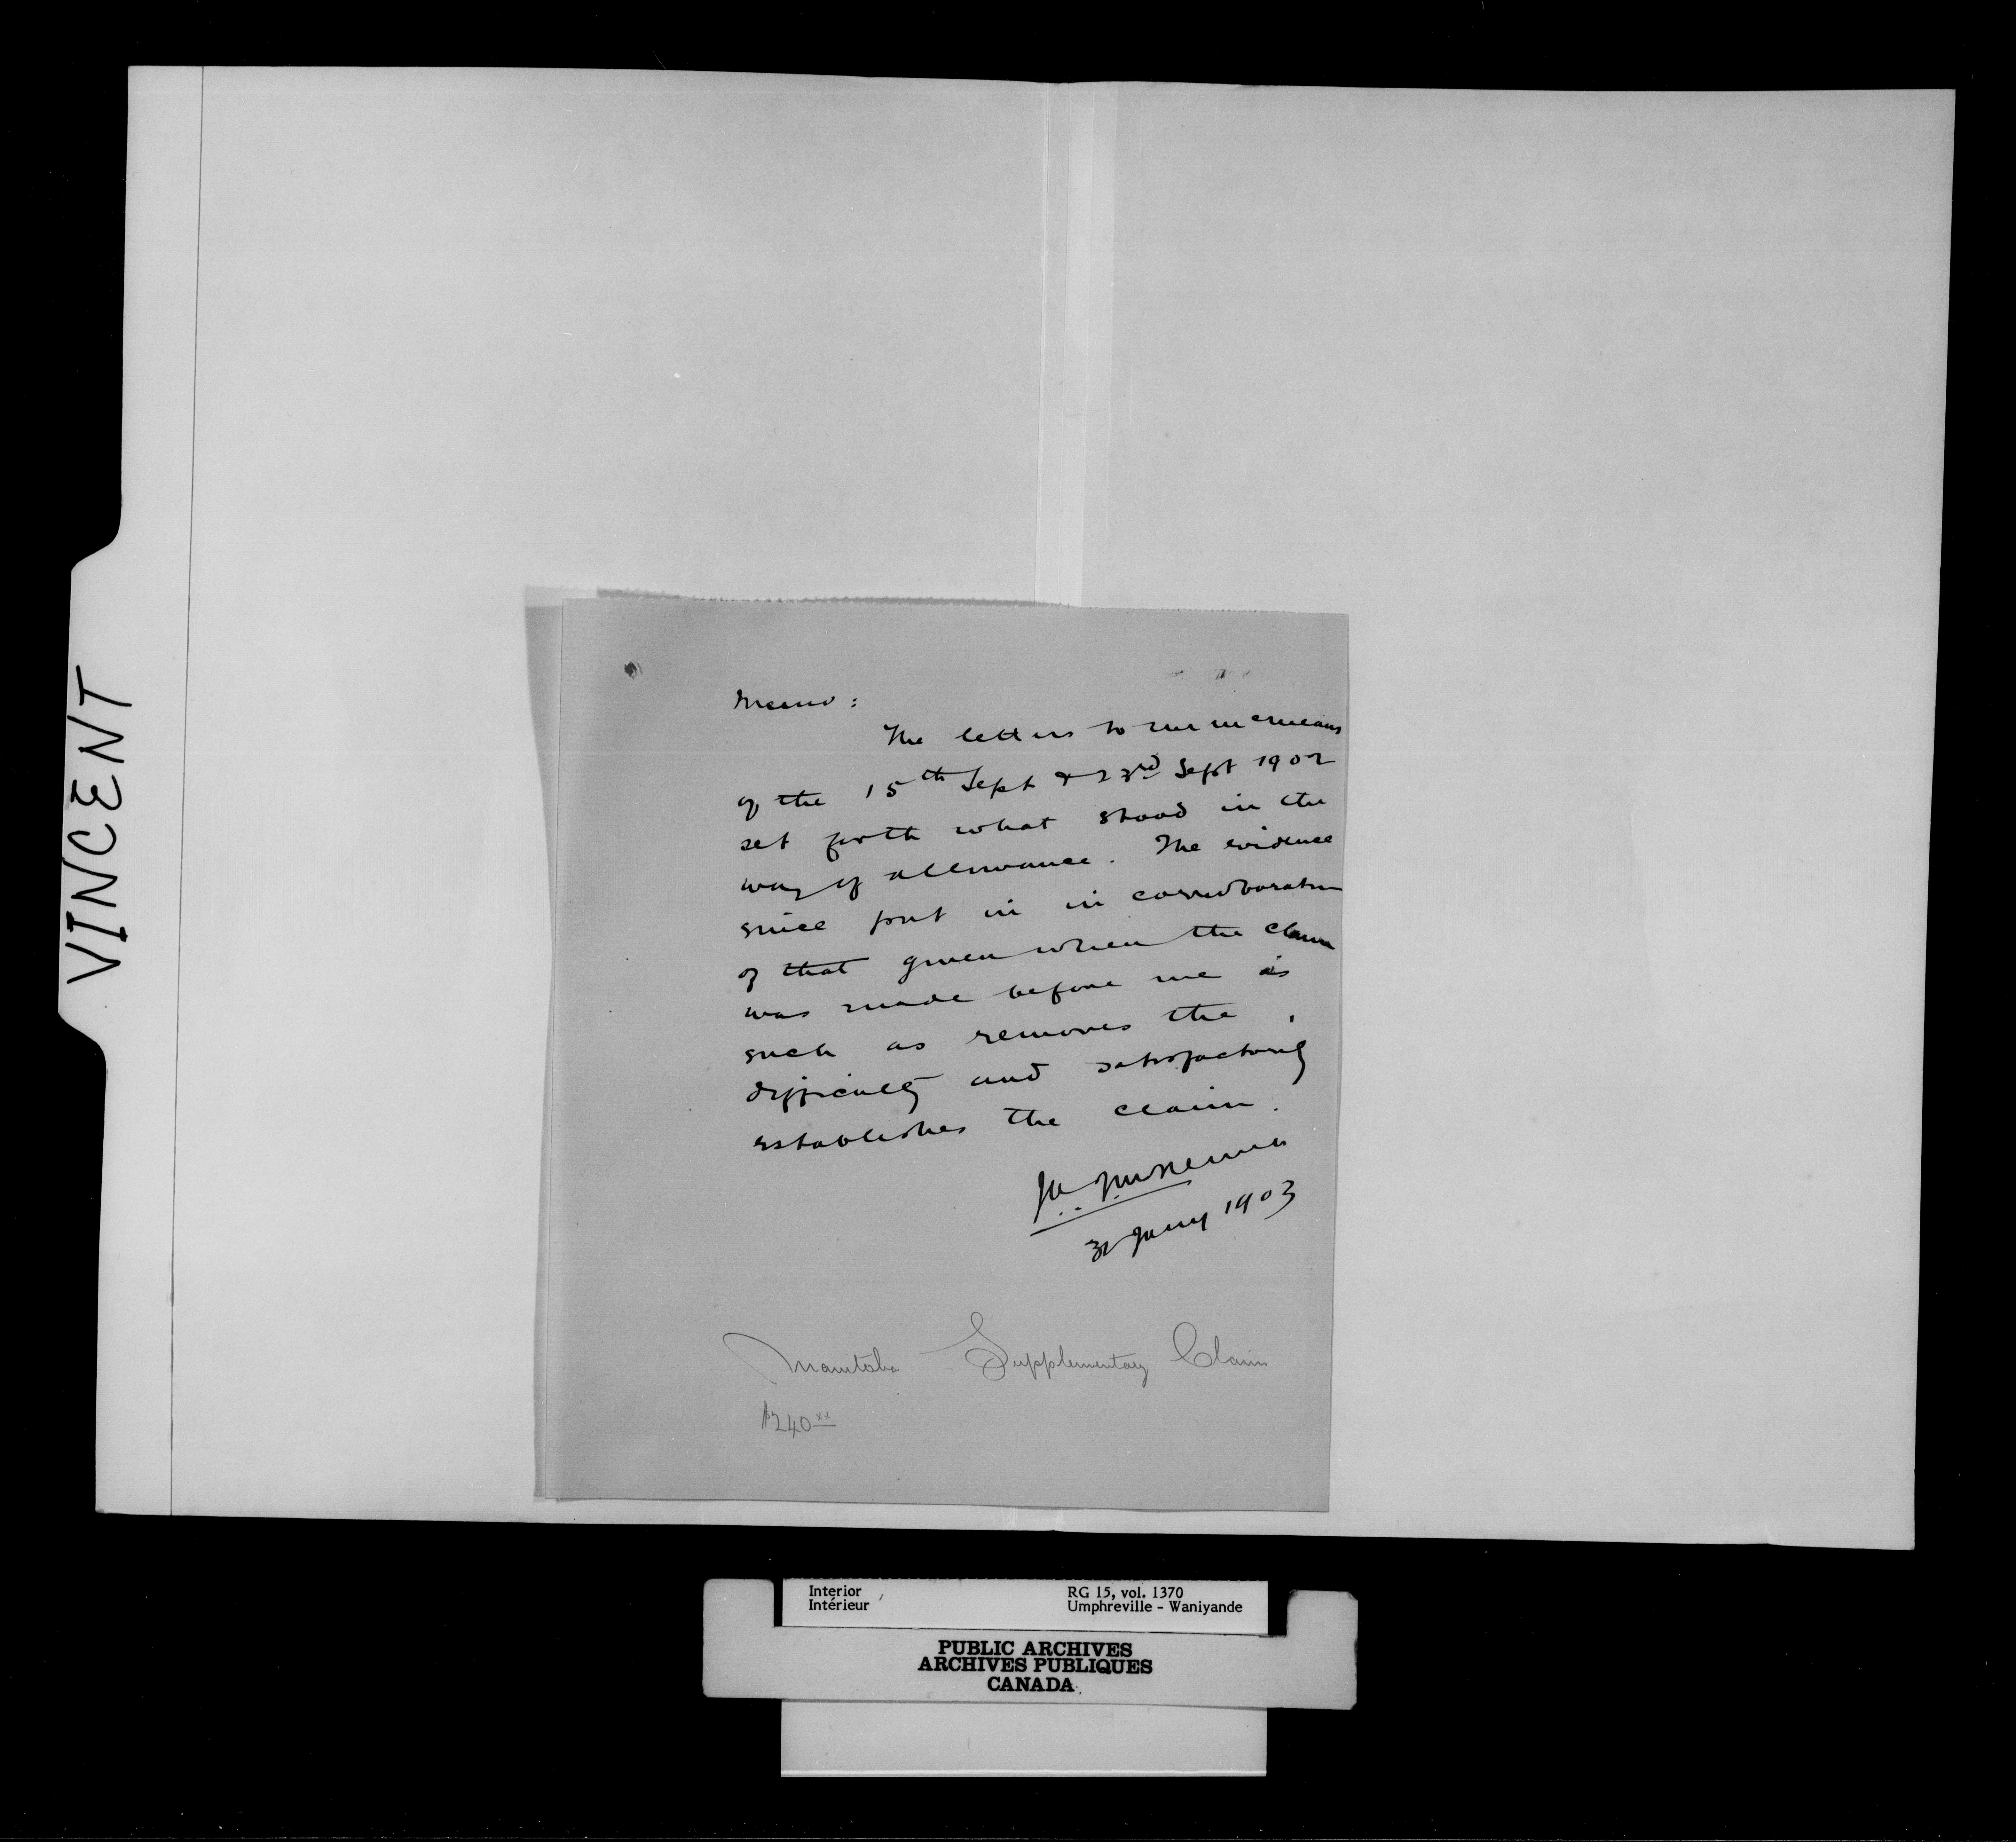 VINCENT
Memo:
The letters to
of the 15th Sept & 23rd Sept 1902
set forth what stood in the
way of allowance. The evidence
since put in in corroboration
of that given when the claim
was made before me is
such as removes the
difficulty and satisfactorily
establishes the claim.
Jany 1903
Manitoba Supplementary Claim
$240xx
Interior
Intérieur
RG 15, vol. 1370
Umphreville - Waniyande
PUBLIC ARCHIVES
ARCHIVES PUBLIQUES
CANADA